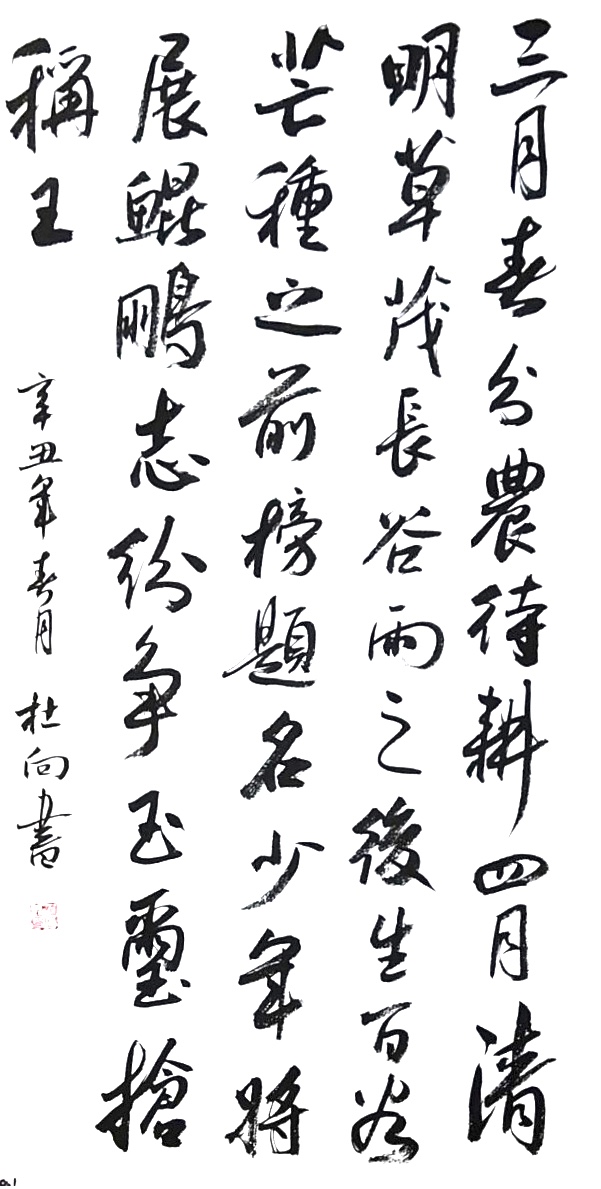 三月春分農待耕四月清
明草茂長谷雨之後生百谷
芒種之前榜題名少年將
展鯤鵬志紛争玉璽搶
稱王
辛丑年春月 杜向書